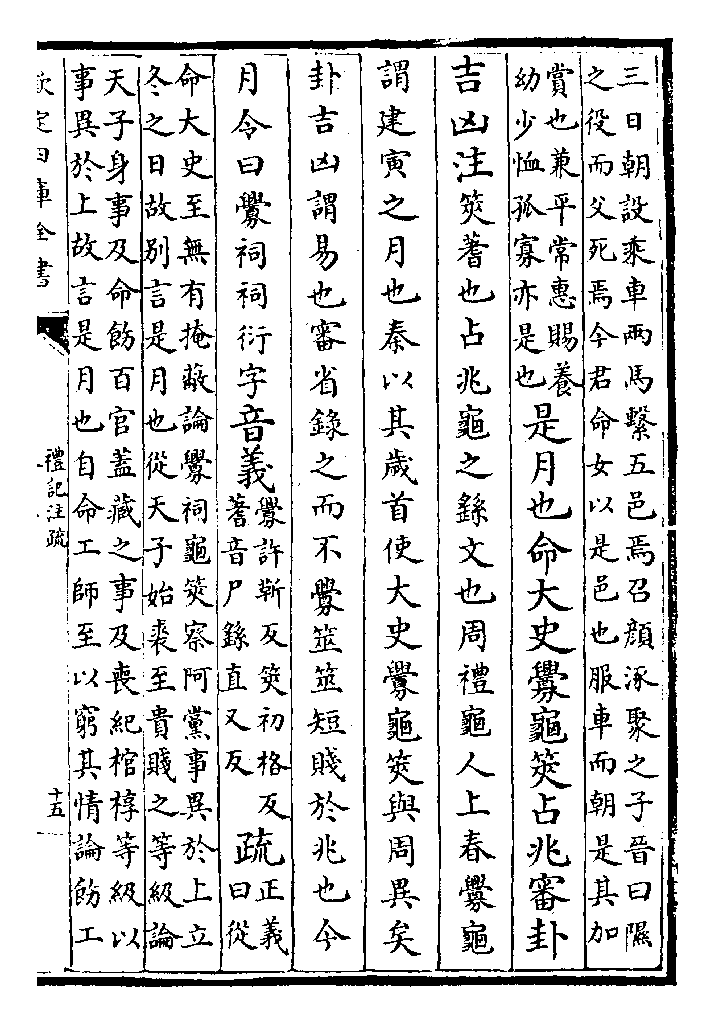 三日朝設乘車兩馬繫五邑焉召顔涿聚之子晉曰隰
之役而父死焉今君命女以是邑也服車而朝是其加
賞也兼平常惠賜養
幼少恤孤寡亦是也
是月也命大史釁龜筴占兆審卦
吉凶注筴蓍也占兆龜之繇文也周禮龜人上春釁龜
謂建寅之月也秦以其歲首使大史釁龜筴與周異矣
卦吉凶謂易也審省錄之而不釁筮筮短賤於兆也今
月令曰釁祠祠衍字音義
釁許靳反筴初格反
蓍音尸繇直又反
疏
正義
曰從
命大史至無有掩蔽論釁祠龜筴察阿黨事異於上立
冬之日故别言是月也從天子始裘至貴賤之等級論
天子身事及命飭百官蓋藏之事及喪紀棺椁等級以
事異於上故言是月也自命工師至以窮其情論飭工
欽定四庫全書
禮記注疏
十五